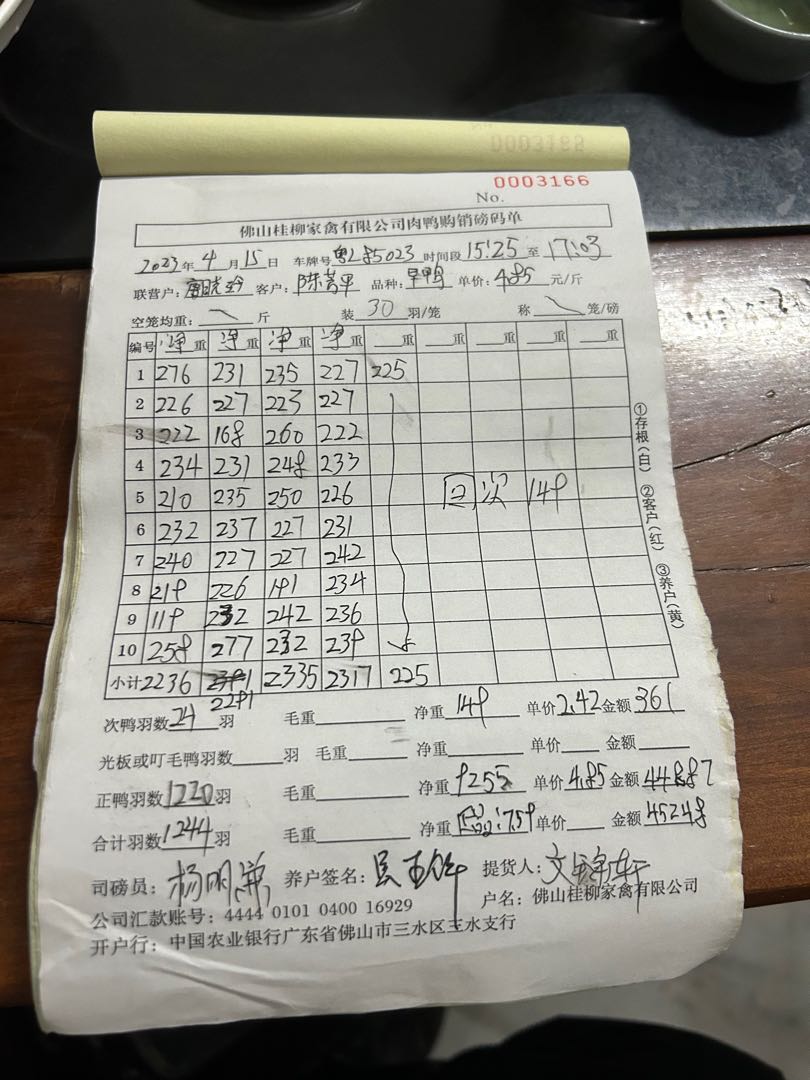 0003166
No.
佛山桂柳家禽有限公司肉鸭购销磅码单
2023年4月15日 车牌号粤L85023时间段15:25至17:03
联营户: 客户: 品种:旱鸭 单价:4.85元/斤
空笼均重: 斤 装30羽/笼 称 笼/磅
编号 净重 净重 净重 净重 重 重 重 重
1 276 231 235 227 225
2 226 227 223 227
3 222 168 260 222
4 234 231 248 233
5 210 235 250 226 回次 149
6 232 237 227 231
7 240 227 227 242
8 219 226 191 234
9 119 232 242 236
10 258 277 232 239
小计 2236 2335 2317 225
2291
次鸭羽数24羽 毛重 净重149 单价2.42金额361
光板或叮毛鸭羽数 羽 毛重 净重 单价 金额
正鸭羽数1220羽 毛重 净重9255 单价4.85金额44887
合计羽数1244羽 毛重 净重 7.59单价 金额45248
司磅员: 养户签名: 提货人:
公司汇款账号:4444 0101 0400 16929 户名:佛山桂柳家禽有限公司
开户行:中国农业银行广东省佛山市三水区玉水支行
①存根(白) ②客户(红) ③养户(黄)